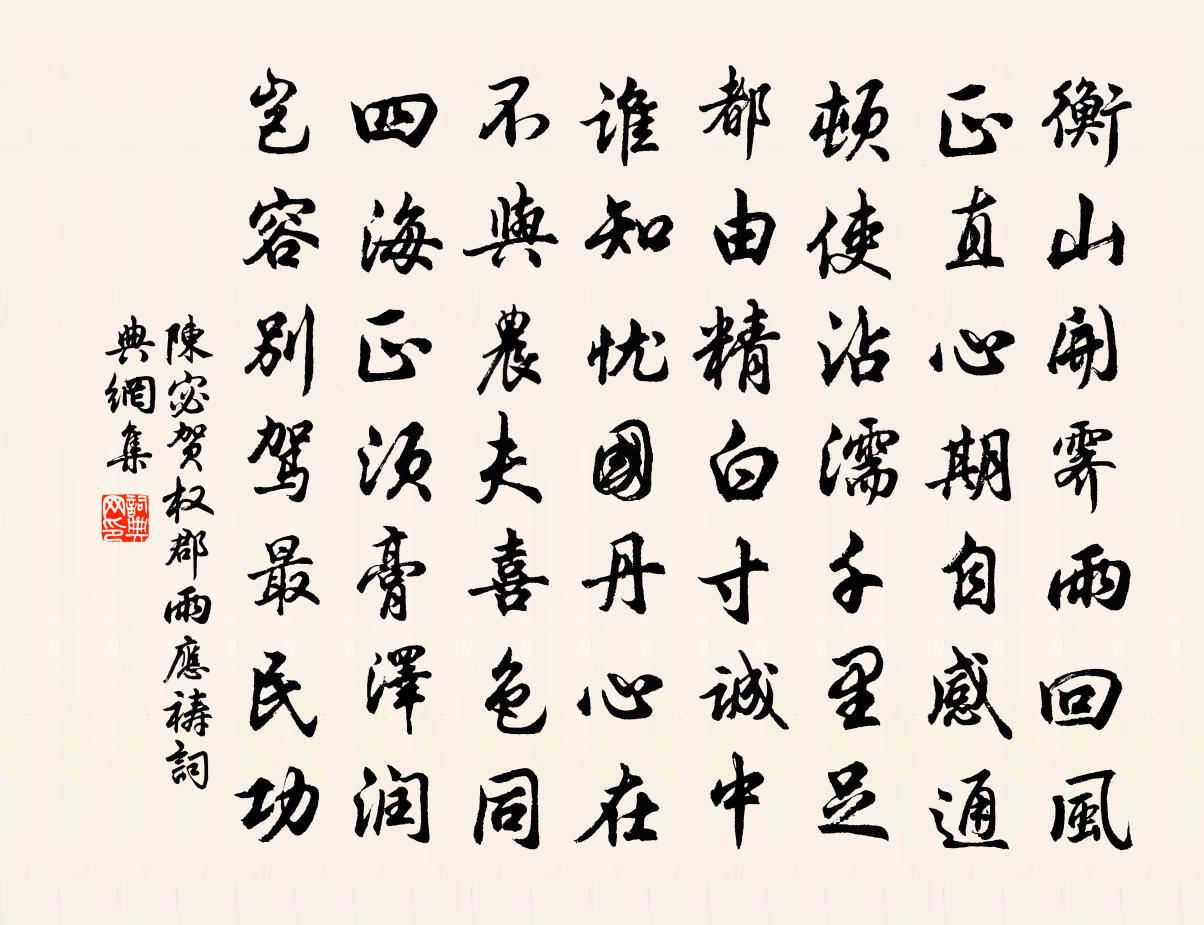 衡山開霁雨回風
正直心期自感通
頓使沾濡千里足
都由精白寸誠中
誰知忧國丹心在
不與農夫喜色同
四海正须膏澤润
岂容别駕最民功
陳宓贺权郡雨應祷詞
典網集
詞典网印